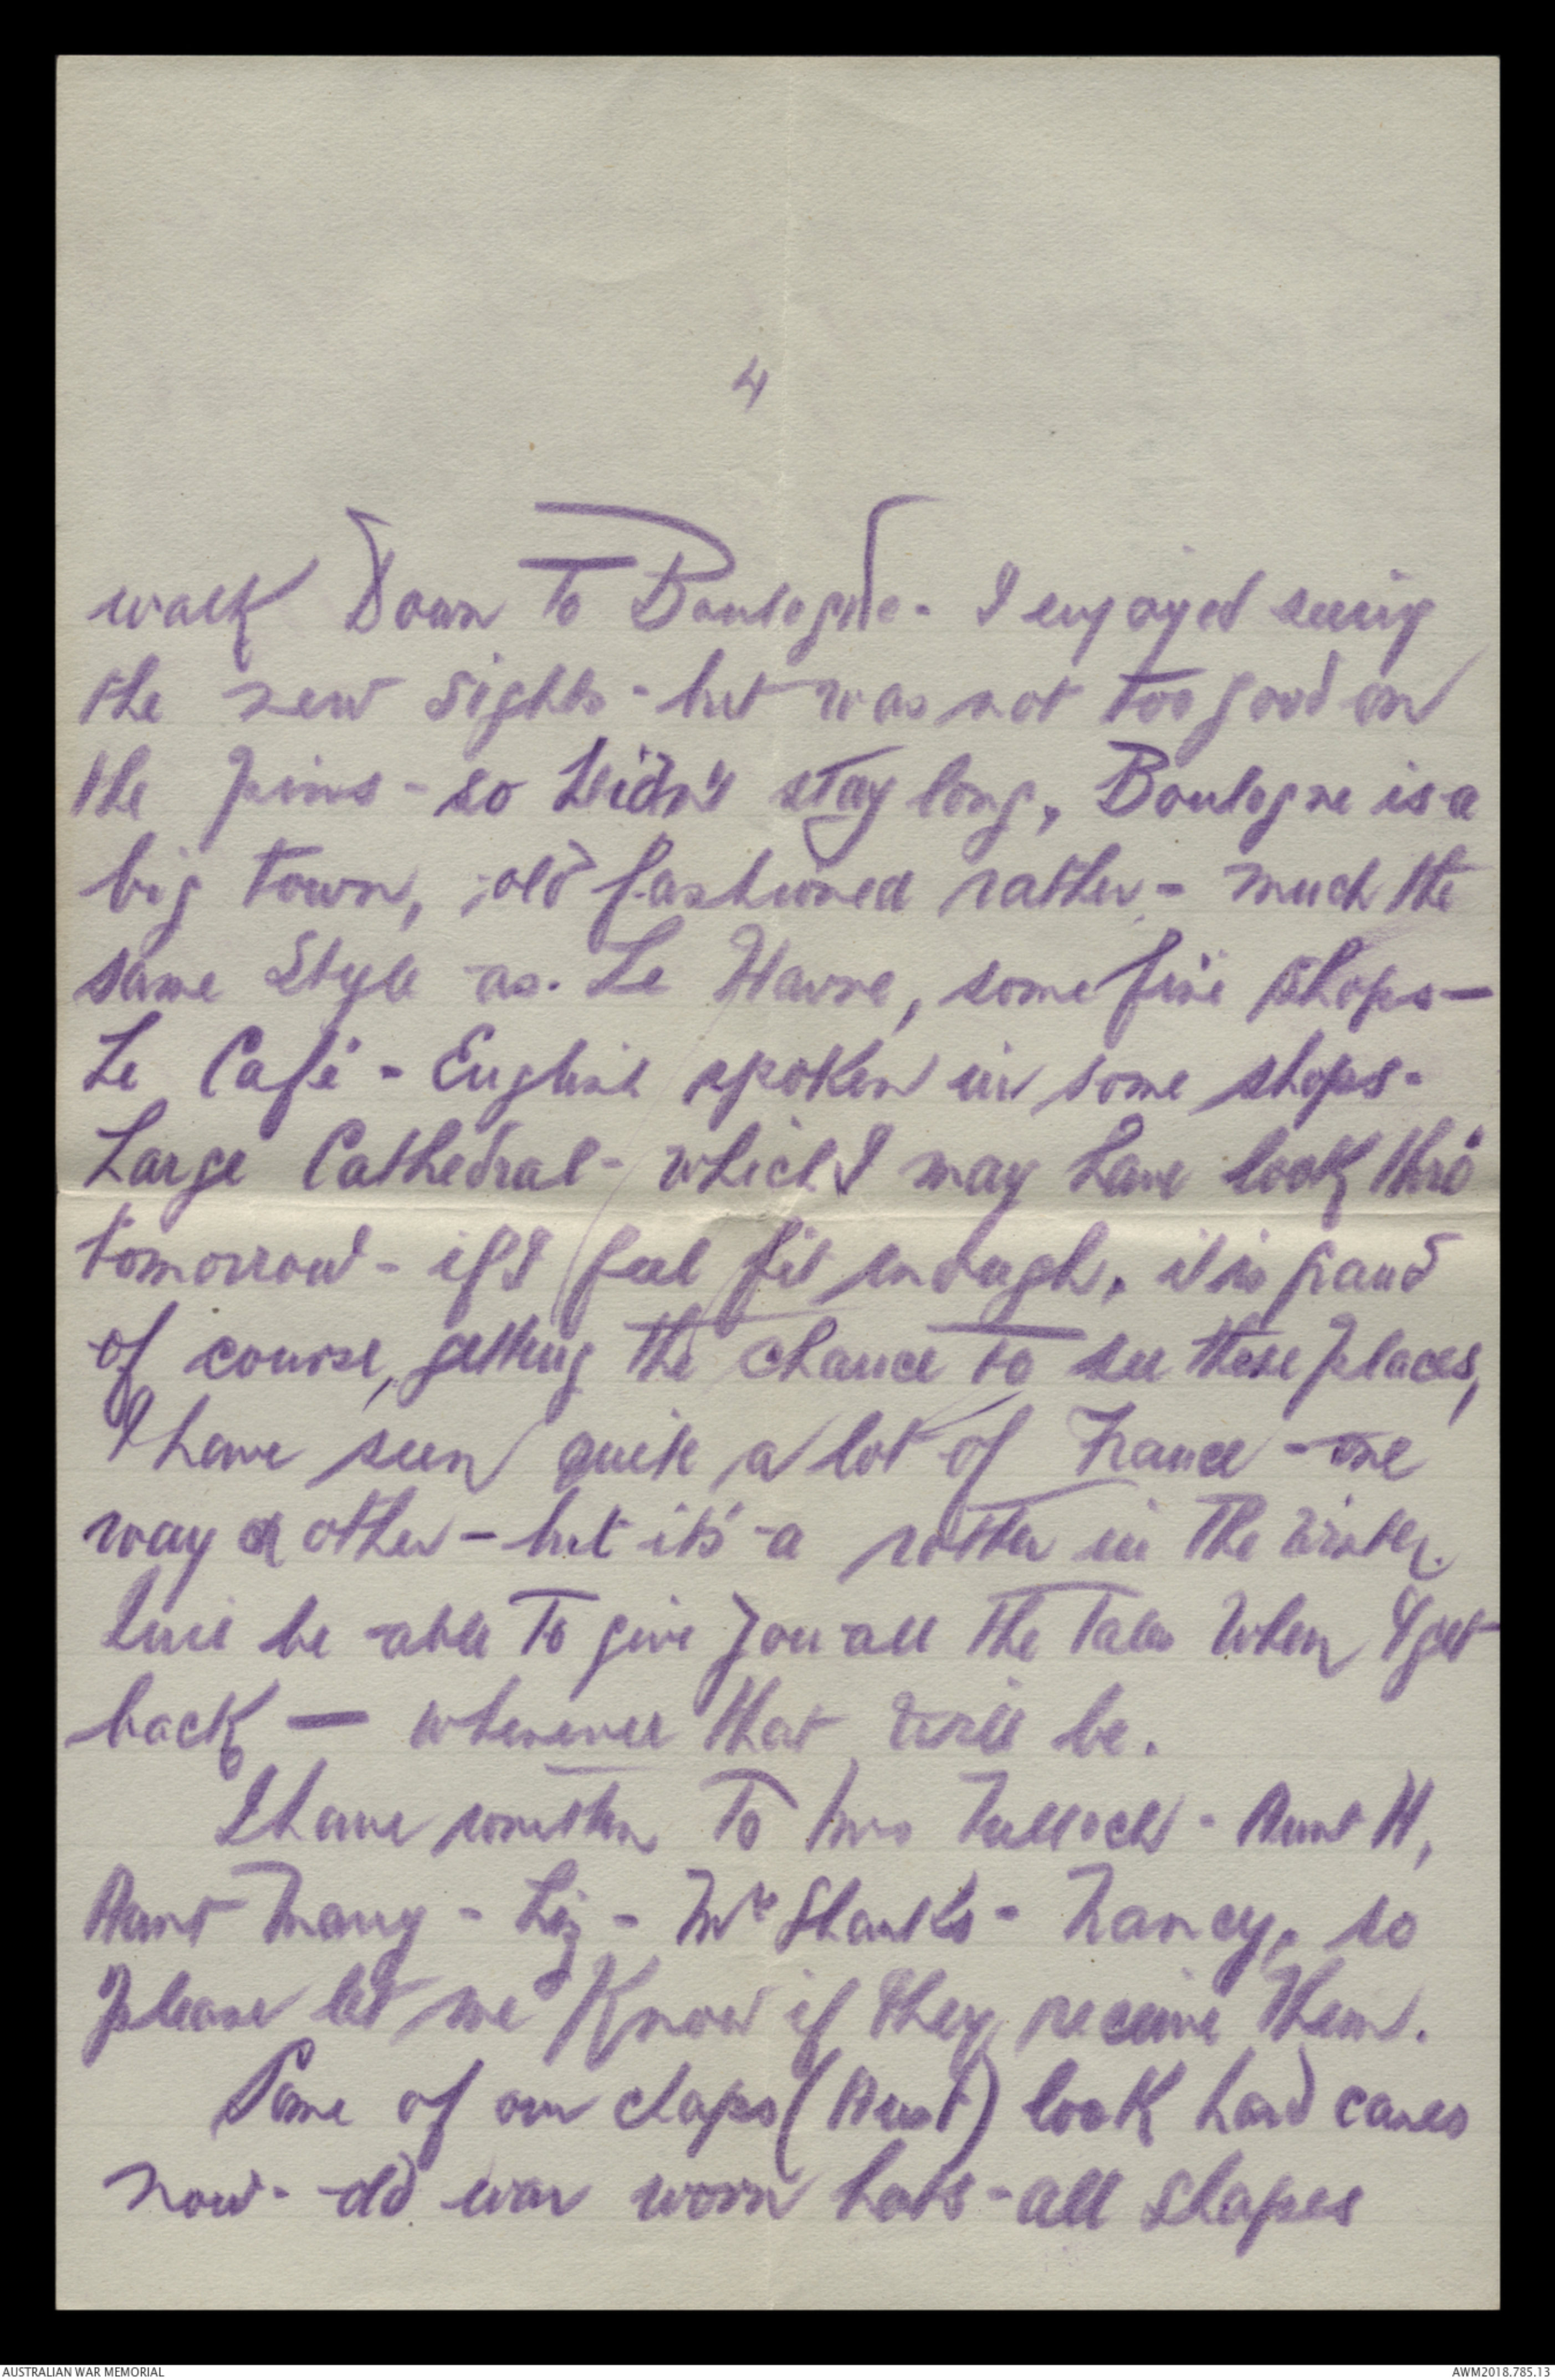 4
walk Down To Boulogne - I enjoyed seeing
the new sights - but was not too good on
the pins - so didn't stay long, Boulogne is a
big town, old fashioned rather - much the
same style as Le Havre, some fine shops -
Le Café - English spoken in some shops -
Large Cathedral - which I may have look thro'
tomorrow - if I feel fit enough, it is grand
of course, getting the chance to see these places,
I have seen quite a lot of France - one
way or other - but it's a rotter in the winter.
will be able To give you all the Tales when I get
back — whenever that will be.
I have written To Mrs Tulloch - Aunt H,
Aunt Mary - Liz - Mr Shanks - Nancy, so
please let me Know if they receive them.
Some of our chaps (Aust) look hard cases
now - old war worn hats - all shapes
AUSTRALIAN WAR MEMORIAL
AWM2018.785.13